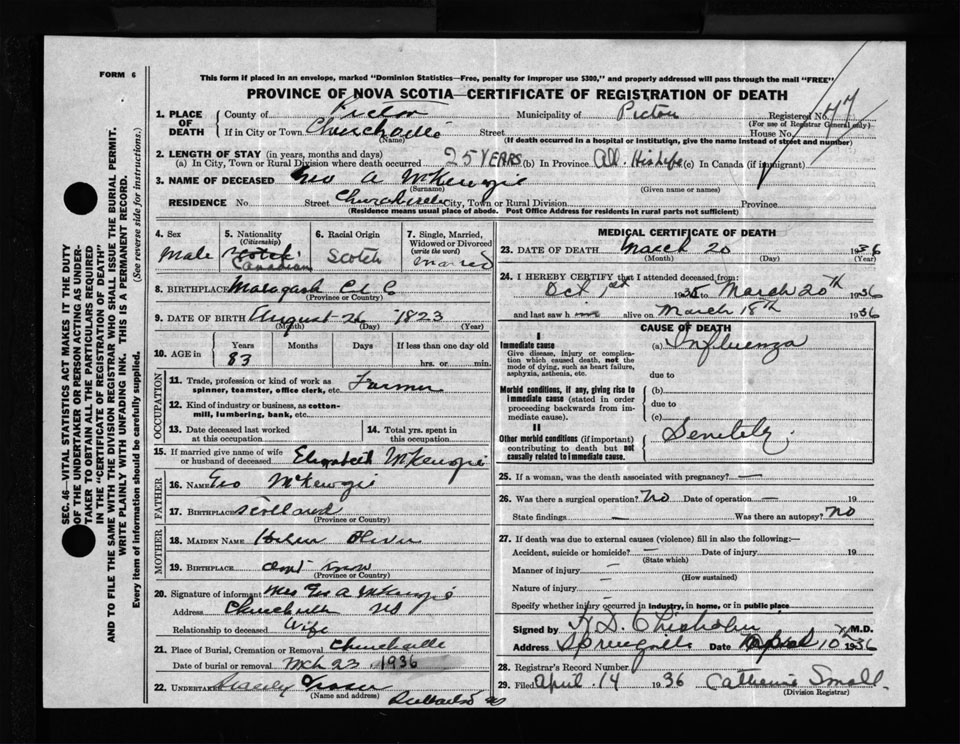 FORM 6
This form if placed in an envelope, marked "Dominion Statistics—Free, penalty for improper use $300," and properly addressed will pass through the mail "FREE"
PROVINCE OF NOVA SCOTIA—CERTIFICATE OF REGISTRATION OF DEATH
1. PLACE OF DEATH County of Pictou Municipality of Pictou Registered No. 77
(For use of Registrar General only)
If in City or Town Churchville Street House No.
(Name) (If death occurred in a hospital or institution, give the name instead of street and number)
2. LENGTH OF STAY (in years, months and days)
(a) In City, Town or Rural Division where death occurred 25 YEARS (b) In Province All His Life (c) In Canada (if immigrant)
3. NAME OF DECEASED Geo A McKenzie
(Surname) (Given name or names)
RESIDENCE No Street Churchville City, Town or Rural Division Province
(Residence means usual place of abode. Post Office Address for residents in rural parts not sufficient)
4. Sex
Male
5. Nationality
(Citizenship)
Scotch
Canadian
6. Racial Origin
Scotch
7. Single, Married, Widowed or Divorced
(write the word)
Married
8. BIRTHPLACE Malagash Col Co
(Province or Country)
9. DATE OF BIRTH August 26 1823
(Month) (Day) (Year)
10. AGE in Years Months Days If less than one day old
83 hrs. or min.
OCCUPATION
11. Trade, profession or kind of work as spinner, teamster, office clerk, etc. Farmer
12. Kind of industry or business, as cotton-mill, lumbering, bank, etc.
13. Date deceased last worked at this occupation
14. Total yrs. spent in this occupation
15. If married give name of wife or husband of deceased Elizabeth McKenzie
FATHER
16. NAME Geo McKenzie
17. BIRTHPLACE Scotland
(Province or Country)
MOTHER
18. MAIDEN NAME Oliver
19. BIRTHPLACE dont know
(Province or Country)
20. Signature of informant Mrs Geo A McKenzie
Address Churchville NS
Relationship to deceased Wife
21. Place of Burial, Cremation or Removal Churchville
Date of burial or removal Mch 23 1936
22. UNDERTAKER Fraser
(Name and address)
MEDICAL CERTIFICATE OF DEATH
23. DATE OF DEATH March 20 1936
(Month) (Day) (Year)
24. I HEREBY CERTIFY that I attended deceased from:
Oct 1st 1935 to March 20th 1936
and last saw him alive on March 18th 1936
CAUSE OF DEATH
I
Immediate cause
Give disease, injury or complication which caused death, not the mode of dying, such as heart failure, asphyxia, asthenia, etc.
(a) Influenza
due to
Morbid conditions, if any, giving rise to immediate cause (stated in order proceeding backwards from immediate cause).
(b)
due to
(c)
II
Other morbid conditions (if important) contributing to death but not causally related to immediate cause.
Senility.
25. If a woman, was the death associated with pregnancy? —
26. Was there a surgical operation? No Date of operation — 19
State findings — Was there an autopsy? No
27. If death was due to external causes (violence) fill in also the following:—
Accident, suicide or homicide? — Date of injury 19
(State which)
Manner of injury —
(How sustained)
Nature of injury —
Specify whether injury occurred in industry, in home, or in public place
Signed by H. D. Chisholm M.D.
Address Springville Date April 10th 1936
28. Registrar's Record Number
29. Filed April 14 1936 Catherine Small.
(Division Registrar)
SEC. 46—VITAL STATISTICS ACT MAKES IT THE DUTY
OF THE UNDERTAKER OR PERSON ACTING AS UNDER-
TAKER TO OBTAIN ALL THE PARTICULARS REQUIRED
IN THE "CERTIFICATE OF REGISTRATION OF DEATH"
AND TO FILE THE SAME WITH THE DIVISION REGISTRAR WHO SHALL ISSUE THE BURIAL PERMIT.
WRITE PLAINLY WITH UNFADING INK. THIS IS A PERMANENT RECORD.
Every item of information should be carefully supplied. (See reverse side for instructions.)